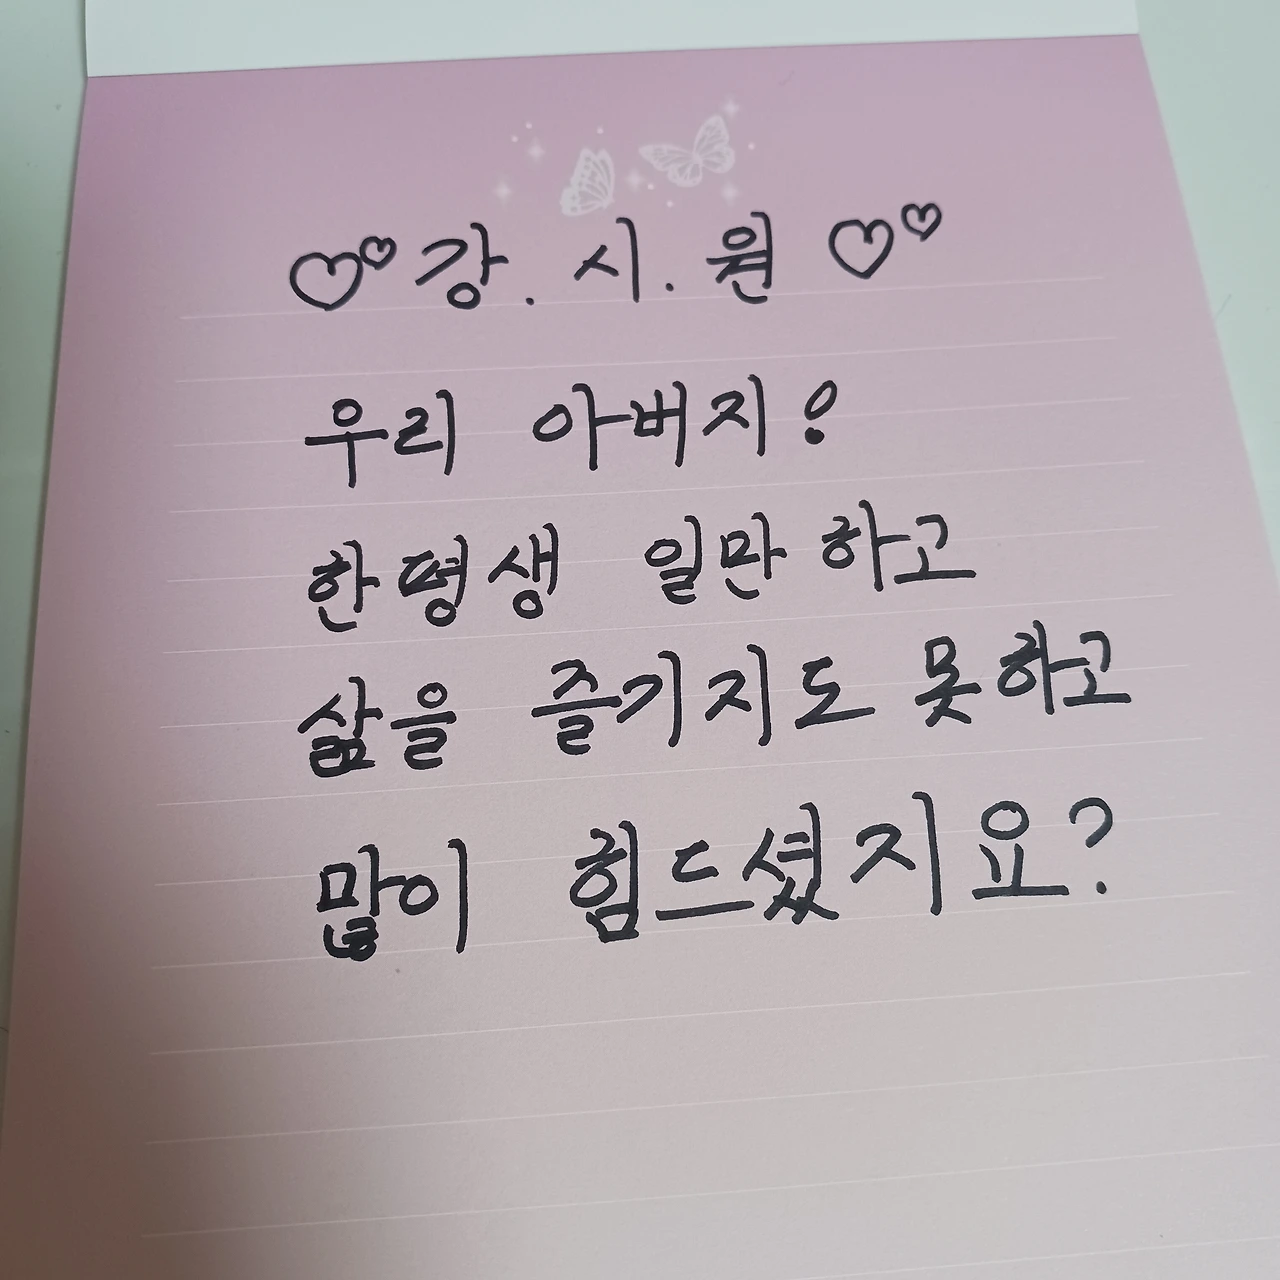 ♡♡강.시.원♡♡
우리 아버지!
한평생 일만하고
삶을 즐기지도 못하고
많이 힘드셨지요?